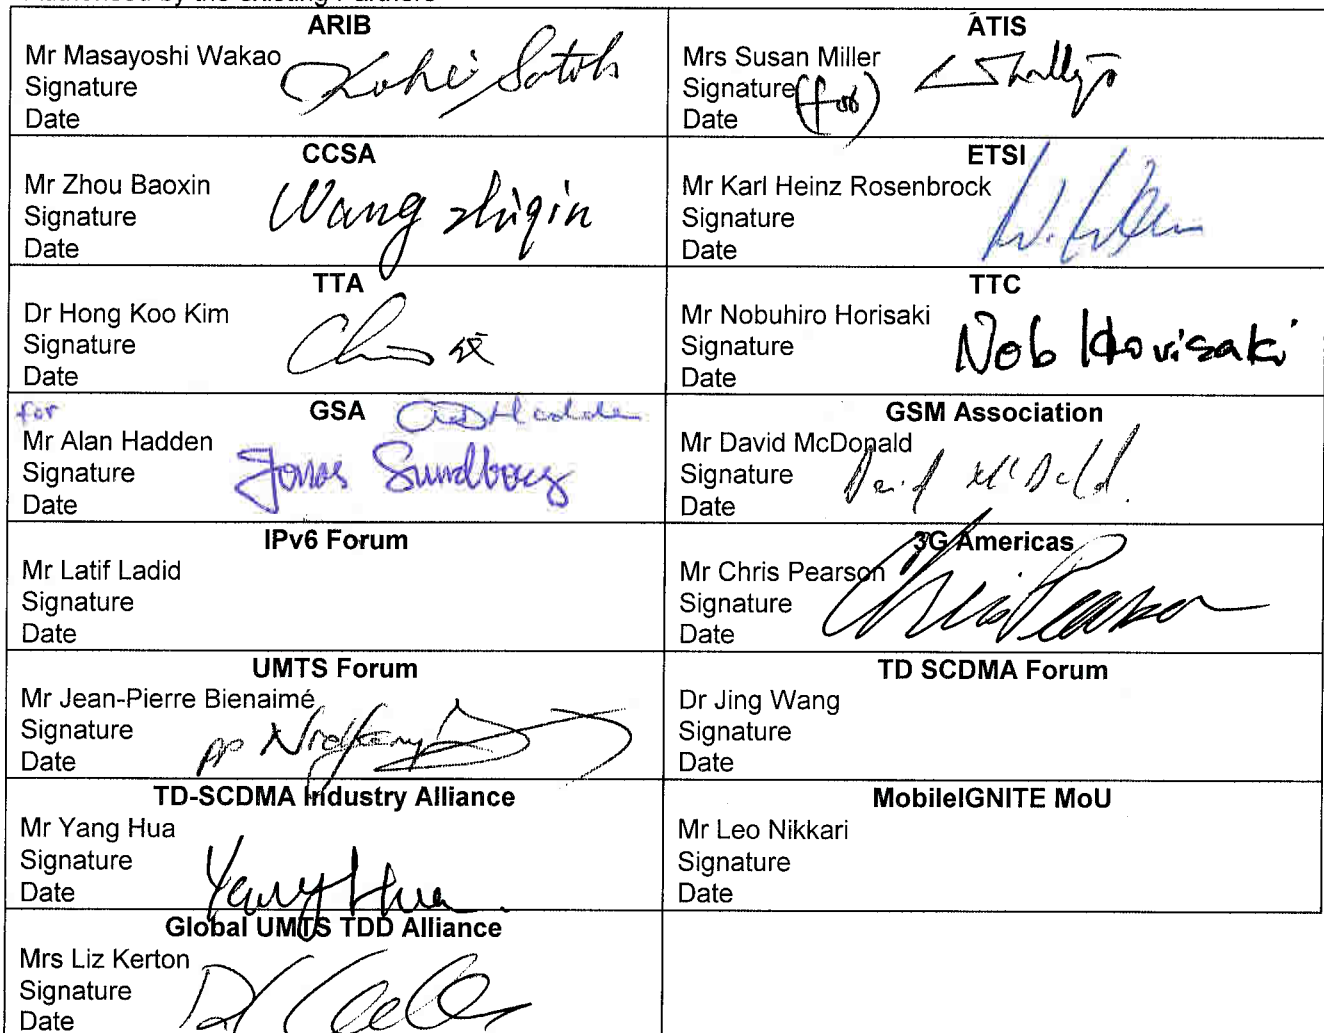 Authorised by the existing Partners
ARIB
Mr Masayoshi Wakao
Signature Kohei Satoh
Date
ATIS
Mrs Susan Miller
Signature (for)
Date
CCSA
Mr Zhou Baoxin
Signature Wang zhiqin
Date
ETSI
Mr Karl Heinz Rosenbrock
Signature
Date
TTA
Dr Hong Koo Kim
Signature
Date
TTC
Mr Nobuhiro Horisaki
Signature Nob Horisaki
Date
for GSA ADHadden
Mr Alan Hadden
Signature Jonas Sundborg
Date
GSM Association
Mr David McDonald
Signature David McDonald
Date
IPv6 Forum
Mr Latif Ladid
Signature
Date
3G Americas
Mr Chris Pearson
Signature Chris Pearson
Date
UMTS Forum
Mr Jean-Pierre Bienaimé
Signature
Date pp
TD SCDMA Forum
Dr Jing Wang
Signature
Date
TD-SCDMA Industry Alliance
Mr Yang Hua
Signature
Date Yang Hua
MobileIGNITE MoU
Mr Leo Nikkari
Signature
Date
Global UMTS TDD Alliance
Mrs Liz Kerton
Signature
Date